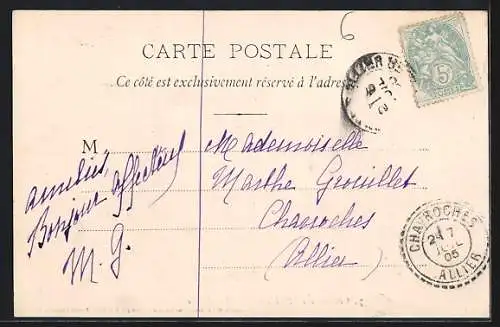 6
CARTE POSTALE
Ce côté est exclusivement réservé à l'adresse
5
M
Mademoiselle
Marthe Grouillet
Chavroches
(Allier)
amitiés,
Bonjour affectueux
M. G.
CHAVROCHES
24 7
JUIL
05
ALLIER